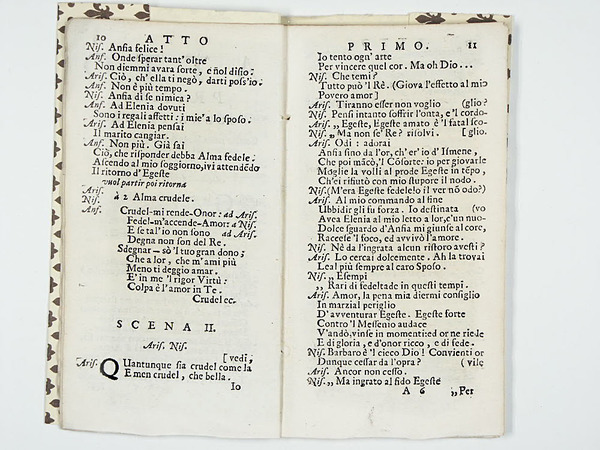 10 ATTO
Nis. Ansia felice!
Ans. Onde sperar tant' oltre
Non diemmi avara sorte, e ñol disio:
Aris. Ciò, ch' ella ti negò, darti poss'io:
Ans. Non è più tempo.
Nis. Ansia di se nimica?
Ans. Ad Elenia dovuti
Sono i regali affetti: i mie' a lo sposo.
Aris. Ad Elenia pensai
Il marito cangiar.
Ans. Non più. Già sai
Ciò, che risponder debba Alma fedele:
Ascendo al mio soggiorno, ivi attendẽdo
Il ritorno d'Egeste
vuol partir poi ritorna
Aris.
Nis. à 2 Alma crudele.
Ans.
Crudel-mi rende-Onor: ad Aris.
Fedel-m'accende-Amor: a Nis.
E se tal'io non sono ad Aris.
Degna non son del Re.
Sdegnar-sò 'l tuo gran dono;
Che a lor, che m'ami più
Meno ti deggio amar.
E'in me 'l rigor Virtù:
Colpa è l'amor in Te.
Crudel ec.
SCENA II.
Aris. Nis.
[vedi,
Aris. QUantunque sia crudel come la
E men crudel, che bella.
Io
PRIMO. 11
Io tento ogn' arte
Per vincere quel cor. Ma oh Dio...
Nis. Che temi?
Tutto può 'l Rè. (Giova l'effetto al mio
Povero amor]
Aris. Tiranno esser non voglio (glio?
Nis. Pensi intanto soffrir l'onta, e 'l cordo-
Aris. „ Egeste, Egeste amato è 'l fatal sco-
Nis. „ Ma non se' Re? risolvi. [glio.
Aris. Odi: adorai
Ansia sino da l'or, ch'er' io d'Ismene,
Che poi mãcò, 'l Cõsorte: io per giovarle
Moglie la volli al prode Egeste in tẽpo,
Ch'ei rifiutò con mio stupore il nodo.
Nis. (M'era Egeste fedele! o il ver nõ odo?)
Aris. Al mio commando al fine
Ubbidir gli fu forza. Io destinata (vo
Avea Elenia al mio letto a lor, c'un nuo-
Dolce sguardo d'Ansia mi giunse al core,
Raccese 'l foco, ed avvivò l'amore.
Nis. Nè da l'ingrata alcun ristoro avesti?
Aris. Lo cercai dolcemente. Ah la trovai
Leal più sempre al caro Sposo.
Nis. „ Esempi
„ Rari di fedeltade in questi tempi.
Aris. Amor, la pena mia diermi consiglio
In marzial periglio
D'avventurar Egeste. Egeste forte
Contro 'l Messenio audace
V'andò, vinse in momenti: ed or ne riede
E di gloria, e d'onor ricco, e di fede.
Nis. Barbaro è 'l cieco Dio! Convienti or
Dunque cessar da l'opra? (vile
Aris. Ancor non cesso.
Nis. „ Ma ingrato al fido Egeste
A 6 „Per